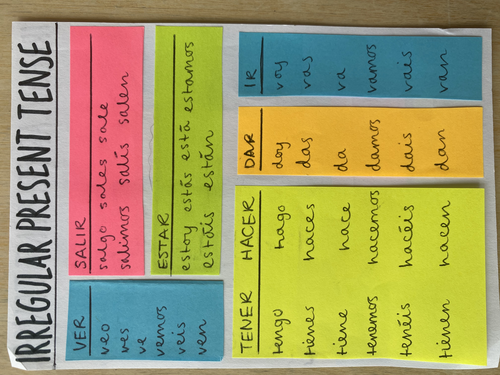 IRREGULAR PRESENT TENSE
VER
veo
ves
ve
vemos
veis
ven
SALIR
salgo sales sale
salimos salís salen
ESTAR
estoy estás está estamos
estáis están
TENER HACER
tengo hago
tienes haces
tiene hace
tenemos hacemos
tenéis hacéis
tienen hacen
DAR
doy
das
da
damos
dais
dan
IR
voy
vas
va
vamos
vais
van